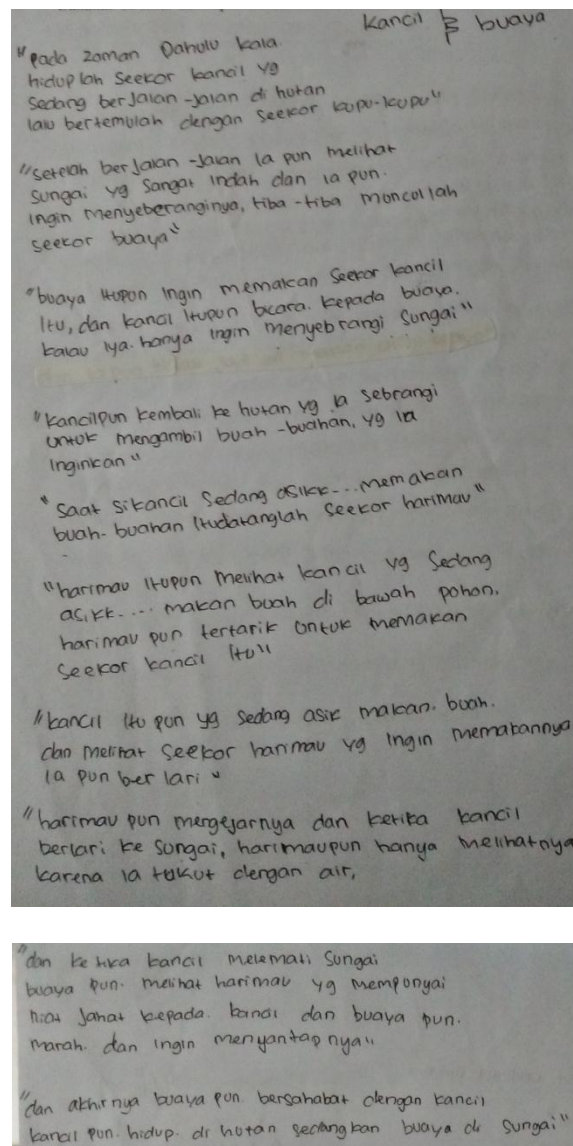 Kancil & buaya
"Pada zaman Dahulu kala.
hiduplah Seekor kancil yg
Sedang berjalan-jalan di hutan
lalu bertemulah dengan seekor kupu-kupu"
"setelah berjalan-jalan ia pun melihat
sungai yg Sangat indah dan ia pun.
ingin menyeberanginya, tiba-tiba moncollah
seekor buaya"
"buaya itupun ingin memakan Seekor kancil
Itu, dan kancil Itupun bicara. kepada buaya.
kalau iya. hanya ingin menyebrangi sungai"
"kancilpun kembali ke hutan yg ia sebrangi
untuk mengambil buah-buahan, yg ia
inginkan"
"Saat sikancil Sedang asikk... memakan
buah-buahan Itudatanglah seekor harimau"
"harimau itupun melihat kancil yg Sedang
asikk.... makan buah di bawah pohon.
harimau pun tertarik untuk memakan
seekor kancil Itu"
"kancil itu pun yg sedang asik makan. buah.
dan melihat seekor harimau yg ingin memakannya
ia pun ber lari"
"harimau pun mengejarnya dan ketika kancil
berlari ke sungai, harimaupun hanya melihatnya
karena ia takut dengan air,
"dan ketika kancil melewati Sungai
buaya pun. melihat harimau yg mempunyai
niat Jahat kepada. kancil dan buaya pun.
marah. dan ingin menyantap nya"
"dan akhirnya buaya pun. bersahabat dengan kancil
kancil pun. hidup. di hutan sedangkan buaya di sungai"